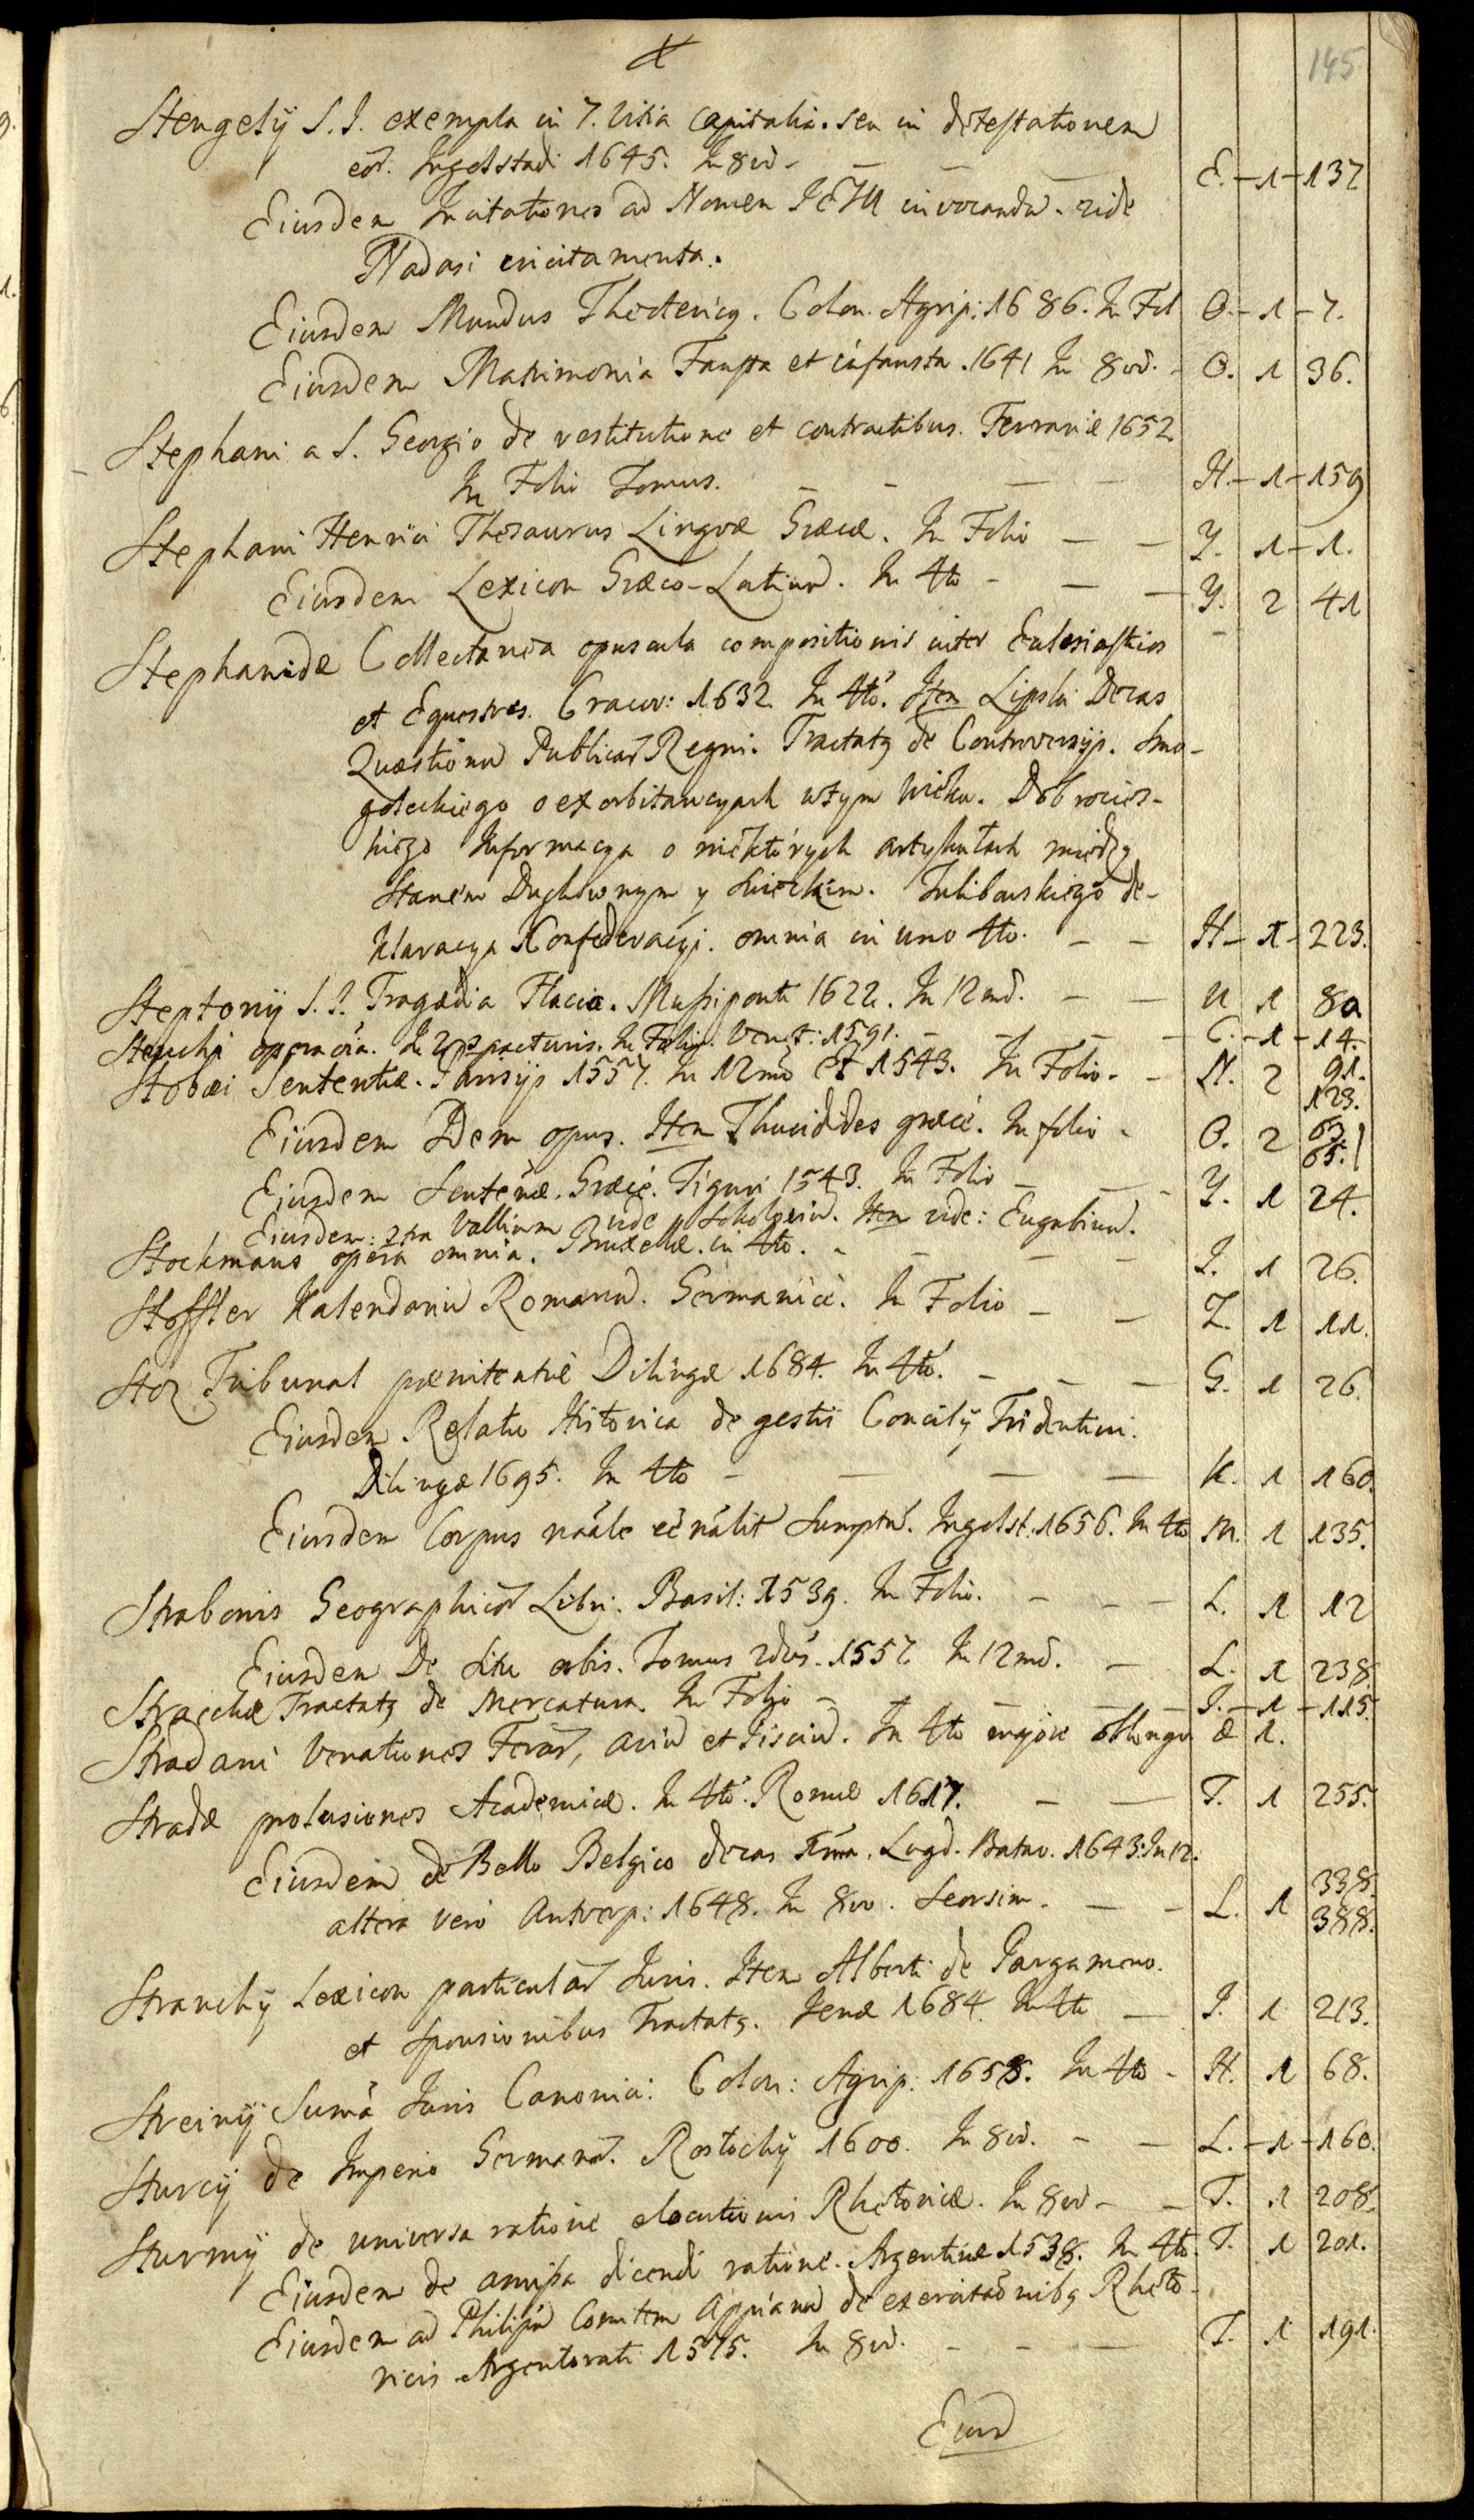 145
Stengely S. I. exempla in 7. Vitia Capitalia. seu in detestationem
eor. Ingolstadi 1645. In 8vo - E. - 1 - 137
Eiusdem Incitationes ad Nomen IESU invocandu. vide
Nadasi incitamenta.
Eiusdem Mundus Theotericq. Colon. Agrip: 1686. In Fol O. - 1 - 7.
Eiusdem Matrimonia Fausta et infausta. 1641 In 8vo. - O. 1 36.
Stephani a S. Georgio de restitutione et contractibus. Ferrariæ 1652
In Folio Tomus. - - - - H. - 1 - 159
Stephani Henrici Thesaurus Linguæ Græcæ. In Folio - - Y. 1 - 1.
Eiusdem Lexicon Græco-Latinu. In 4to - - - Y. 2 41
Stephanidæ Collectanea opuscula compositionis inter Eclesiasticos
et Equestres. Cracov: 1632 In 4to. Item Lipski Decas
Quæstionu Publicar Regni. Tractatq de Controversijs. Smo-
goleckiego o exorbitancyach w tym wieku. Dobrocies-
kiego Informacya o niektórych artykułach między
Stanem Duchownym y Swieckim. Tulibowskiego de-
klaracya Konfederacyi. omnia in uno 4to. - - H - 1 - 223.
Steptonij S. I. Tragædia Flacia. Mussiponti 1622. In 12mo. - - U 1 80
Steuchi opera oia. In 2bs parturis. In Folio. Venet: 1591. - - - - C. - 1 - 14.
Stobæi Sententiæ. Parisijs 1557. In 12mo et 1543. In Folio. - N. 2 91. 123.
Eiusdem Idem opus. Item Thucidides græcè. In folio - O. 2 63 65.
Eiusdem Sentenæ. Græcè. Tiguri 1543. In Folio - - - Y. 1 24.
Eiusdem: 2tra Vallium vide Scholgiu. Item vide: Eugubinu.
Stockmans opera omnia. Bruxellæ. in 4to. - - - - I. 1 26.
Stoffler Kalendariu Romanu. Germanicè. In Folio - - Z. 1 11.
Stoz Tribunal pœnitentiæ Dilingæ 1684. In 4to. - - - G. 1 26.
Eiusdem Relatio Historica de gestis Concilij Tridentini.
Dilingæ 1695. In 4to - - - - K. 1 160.
Eiusdem Corpus nãale eč nãlit Sumptu. Ingolst. 1656. In 4to M. 1 135.
Strabonis Geographicor Libri. Basil: 1539. In Folio. - - - L. 1 12
Eiusdem De situ orbis. Tomus 2dus. 1557 In 12mo. - L. 1 238
Stracchæ Tractatq de Mercatura. In Folio - - - - - I. - 1 - 115.
Stradani Venationes Ferar, aviu et Pisciu. In 4to majore oblongo Æ 1.
Stradæ prolusiones Academicæ. In 4to. Romæ 1617. - - T. 1 255.
Eiusdem de Bello Belgico decas 1ma. Lugd. Batav. 1643. In 12.
altera vero Antverp: 1648. In 8vo. Seorsim. - - L. 1 338. 388.
Strauchij Lexicon particular Juris. Item Alberti de Pargameno.
et Sponsionibus Tractatq. Jenæ 1684. In 4to - I. 1 213.
Streinij Suma Juris Canonici: Colon: Agrip: 1658. In 4to - H. 1 68.
Sturcij de Imperio Germanor. Rostochij 1600. In 8vo. - - L. - 1 - 160.
Sturmij de universa ratione elocutionis Rhetoricæ. In 8vo - - T. 1 208.
Eiusdem de amissa dicendi ratione. Argentinæ 1538. In 4to. T. 1 201.
Eiusdem ad Philipu Comitem Appianu de exercitaõnibq Rheto-
ricis Argentorati 1575. In 8vo. - - - T. 1 191.
Eiusd